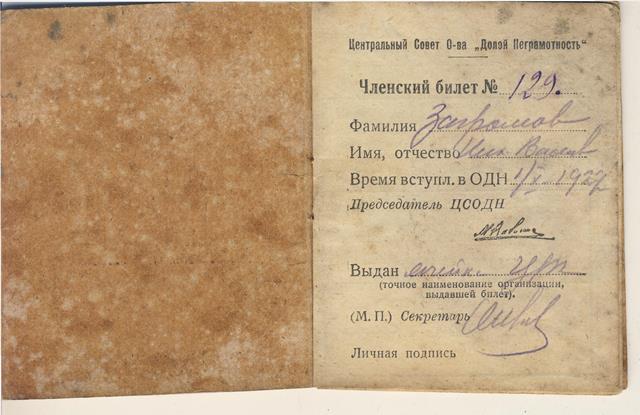 Центральный Совет О-ва „Долой Неграмотность“
Членский билет № 129.
Фамилия
Имя, отчество
Время вступл. в ОДН 1/X 1927
Председатель ЦСОДН
Выдан
(точное наименование организации,
выдавшей билет).
(М. П.) Секретарь
Личная подпись